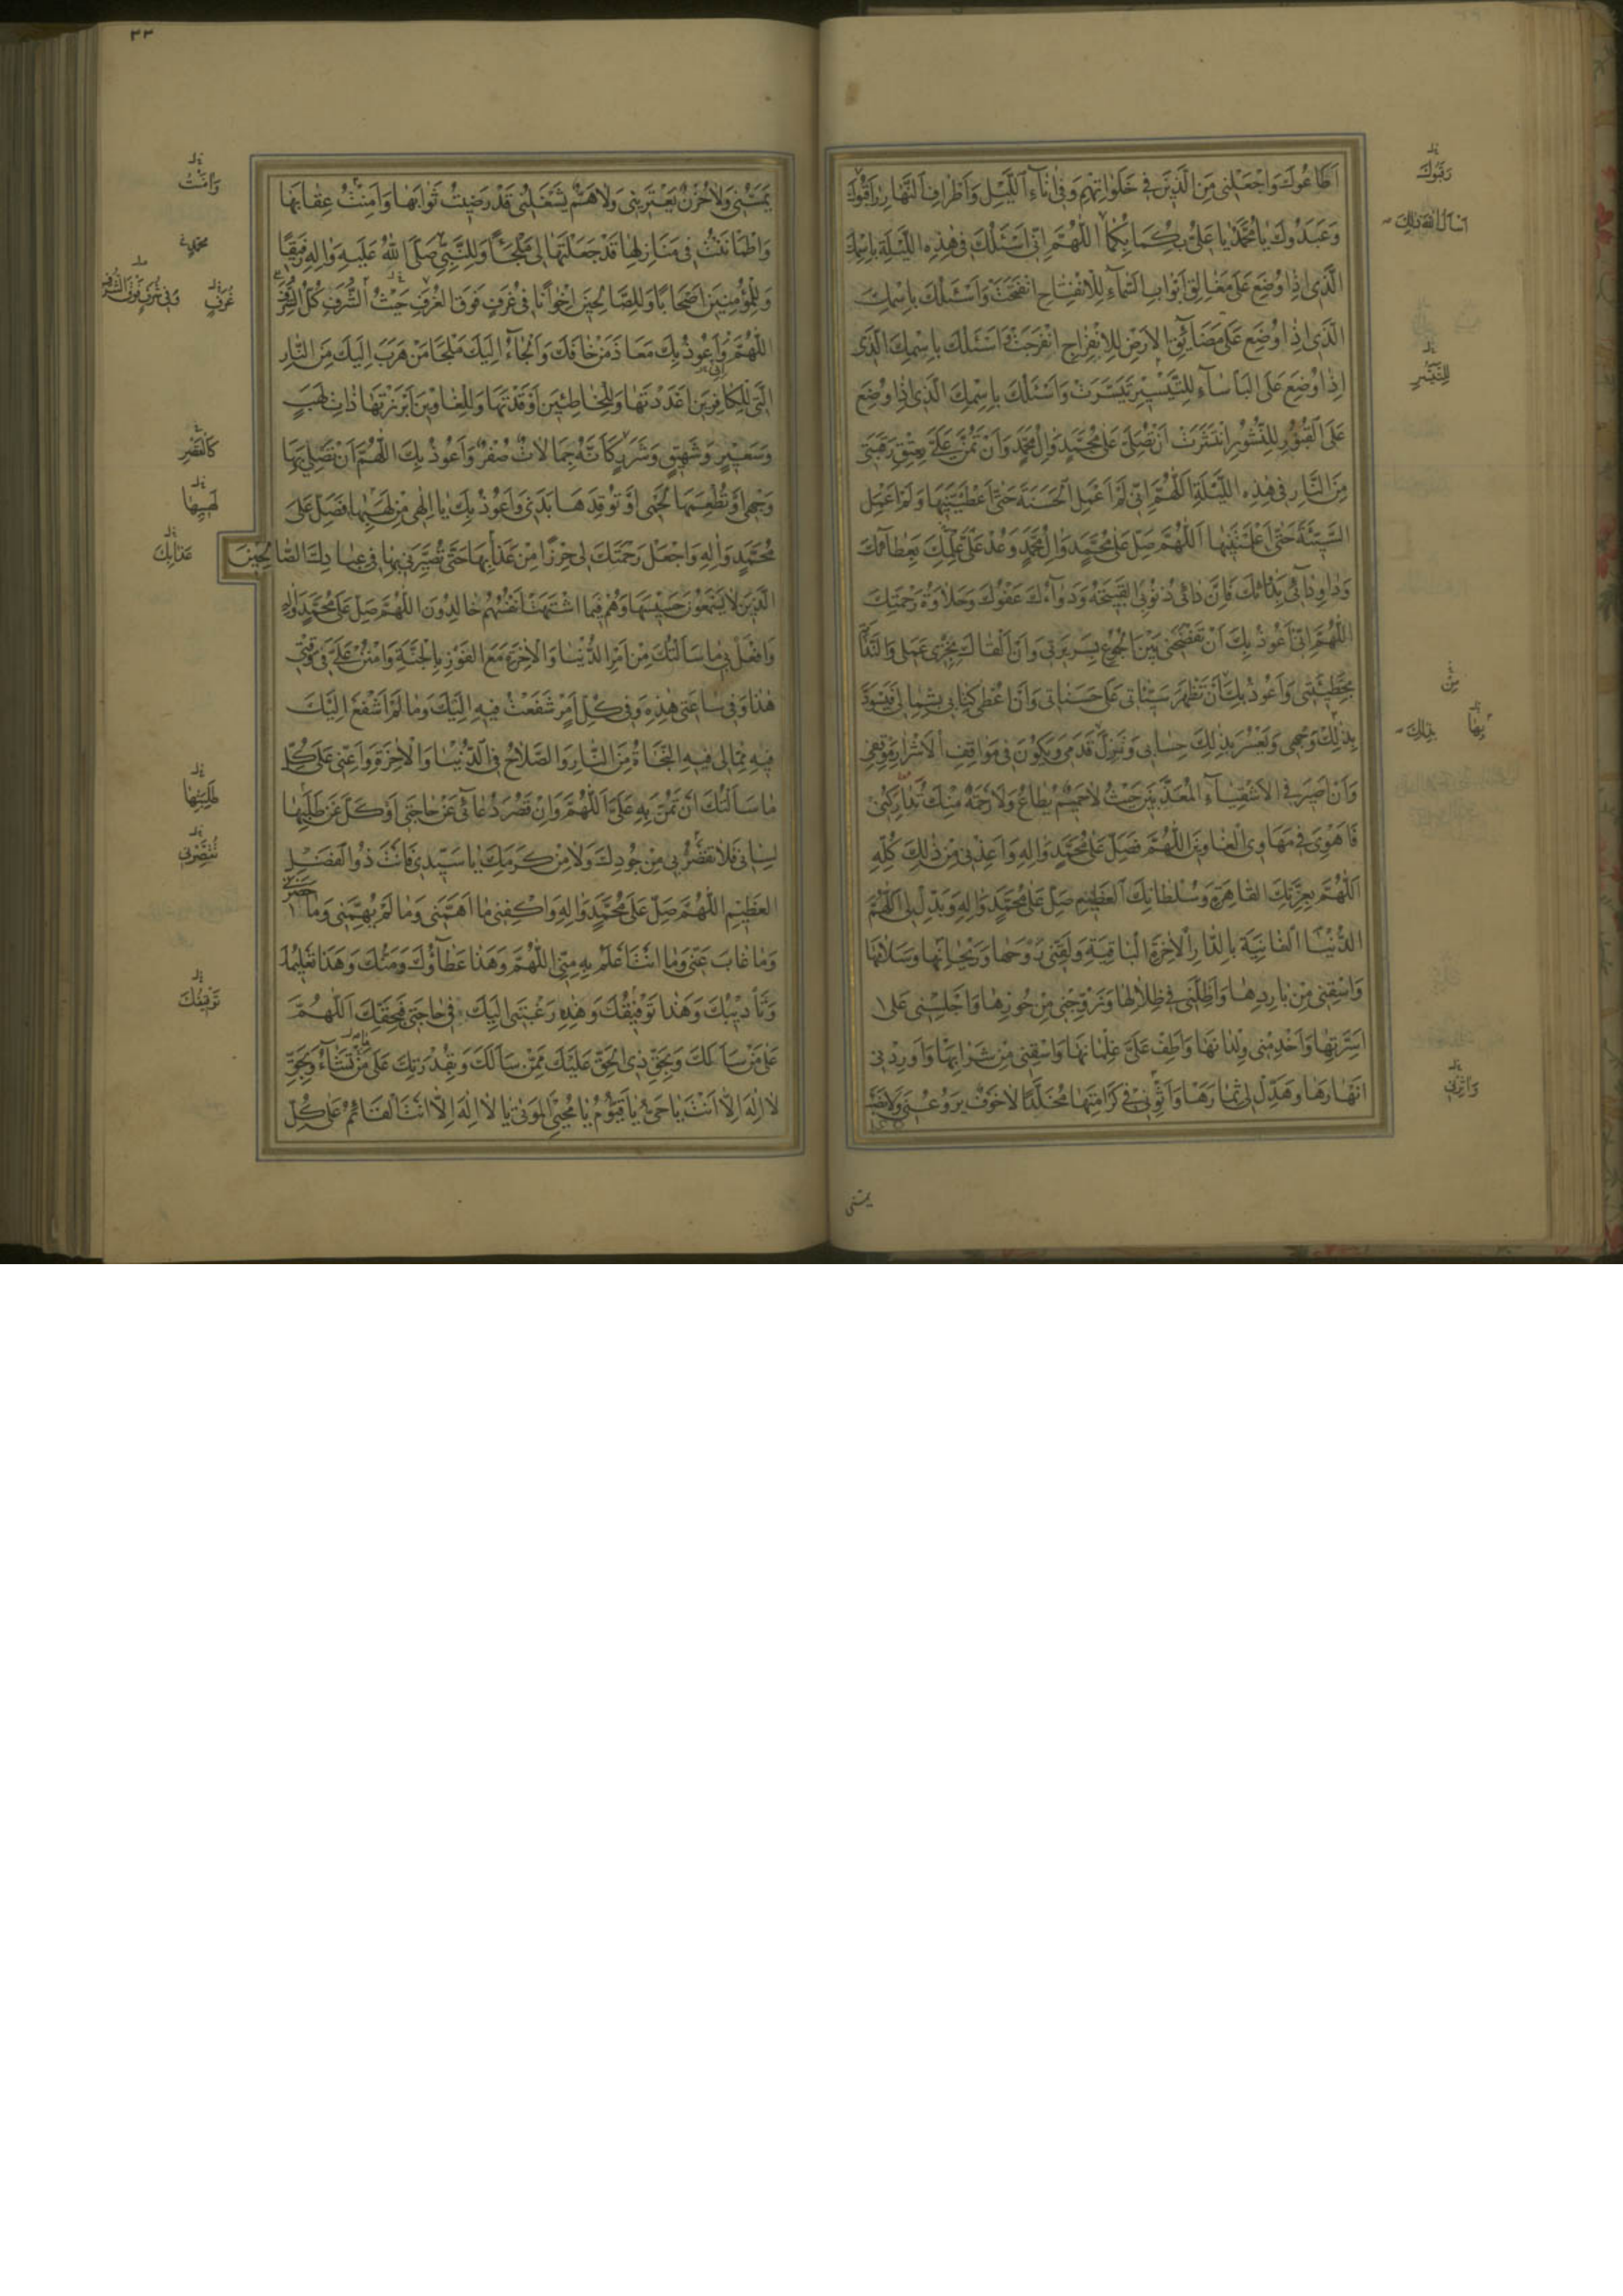 اَطَاعُوكَ وَاجْعَلْنِى مِنَ الَّذِينَ فِى خَلَوَاتِهِمْ وَفِى اٰنَاءِ اللَّيْلِ وَاَطْرَافِ النَّهَارِ رَاقَبُوكَ
وَعَبَدُوكَ يَا مُحَمَّدُ يَا عَلِىُّ بِكُمَا بِكُمَا اللّٰهُمَّ اِنِّى اَسْئَلُكَ فِى هٰذِهِ اللَّيْلَةِ بِاسْمِكَ
الَّذِى اِذَا وُضِعَ عَلَى مَغَالِقِ اَبْوَابِ السَّمَاءِ لِلْاِنْفِتَاحِ انْفَتَحَتْ وَاَسْئَلُكَ بِاسْمِكَ
الَّذِى اِذَا وُضِعَ عَلَى مَضَائِقِ الْاَرْضِ لِلْاِنْفِرَاجِ انْفَرَجَتْ وَاَسْئَلُكَ بِاسْمِكَ الَّذِى
اِذَا وُضِعَ عَلَى الْبَأْسَاءِ لِلتَّيْسِيرِ تَيَسَّرَتْ وَاَسْئَلُكَ بِاسْمِكَ الَّذِى اِذَا وُضِعَ
عَلَى الْقُبُورِ لِلنُّشُورِ انْتَشَرَتْ اَنْ تُصَلِّىَ عَلَى مُحَمَّدٍ وَاٰلِ مُحَمَّدٍ وَاَنْ تَمُنَّ عَلَىَّ بِعِتْقِ رَقَبَتِى
مِنَ النَّارِ فِى هٰذِهِ اللَّيْلَةِ اَللّٰهُمَّ اِنِّى لَمْ اَعْمَلِ الْحَسَنَةَ حَتّٰى اَعْطَيْتَنِيهَا وَلَمْ اَعْمَلِ
السَّيِّئَةَ حَتّٰى اَعْلَمْتَنِيهَا اَللّٰهُمَّ صَلِّ عَلٰى مُحَمَّدٍ وَاٰلِ مُحَمَّدٍ وَعُدْ عَلَىَّ عِلْمِكَ بِعَطَائِكَ
وَدَاوِ دَائِى بِدَوَائِكَ فَاِنَّ دَائِى ذُنُوبِىَ الْقَبِيحَةُ وَدَوَاءَكَ عَفْوُكَ وَحَلَاوَةُ رَحْمَتِكَ
اَللّٰهُمَّ اِنِّى اَعُوذُ بِكَ اَنْ تَفْضَحَنِى بَيْنَ الْجُمُوعِ بِسَرِيرَتِى وَاَنْ اَلْقَاكَ بِخِزْىِ عَمَلِى وَالنَّدَامَةِ
بِخَطِيئَتِى وَاَعُوذُ بِكَ اَنْ تُظْهِرَ سَيِّئَاتِى عَلَى حَسَنَاتِى وَاَنْ اُعْطٰى كِتَابِى بِشِمَالِى فَيَسْوَدَّ
بِذٰلِكَ وَجْهِى وَيَعْسُرَ بِذٰلِكَ حِسَابِى وَتَزِلَّ قَدَمِى وَيَكُونَ فِى مَوَاقِفِ الْاَشْرَارِ مَوْقِفِى
وَاَنْ اَصِيرَ فِى الْاَشْقِيَاءِ الْمُعَذَّبِينَ حَيْثُ لَا حَمِيمٌ يُطَاعُ وَلَا رَحْمَةٌ مِنْكَ تُدَارِكُنِى
فَاَهْوِى فِى مَهَاوِى الْغَاوِينَ اَللّٰهُمَّ فَصَلِّ عَلٰى مُحَمَّدٍ وَاٰلِهِ وَاَعِذْنِى مِنْ ذٰلِكَ كُلِّهِ
اَللّٰهُمَّ بِعِزَّتِكَ الْقَاهِرَةِ وَسُلْطَانِكَ الْعَظِيمِ صَلِّ عَلٰى مُحَمَّدٍ وَاٰلِهِ وَبَدِّلْ لِى اَللّٰهُمَّ
الدُّنْيَا الْفَانِيَةَ بِالدَّارِ الْاٰخِرَةِ الْبَاقِيَةِ وَلَقِّنِى رَوْحَهَا وَرَيْحَانَهَا وَسَلَامَهَا
وَاسْقِنِى مِنْ بَارِدِهَا وَاَظِلَّنِى فِى ظِلَالِهَا وَزَوِّجْنِى مِنْ حُورِهَا وَاَجْلِسْنِى عَلٰى
اَسِرَّتِهَا وَاَخْدِمْنِى وِلْدَانَهَا وَاَطِفْ عَلَىَّ غِلْمَانَهَا وَاسْقِنِى مِنْ شَرَابِهَا وَاَوْرِدْنِى
اَنْهَارَهَا وَهَدِّلْ لِى ثِمَارَهَا وَاَثْوِنِى فِى كَرَامَتِهَا مُخَلَّدًا لَا خَوْفٌ يُرَوِّعُنِى وَلَا نَصَبٌ
يَمَسُّنِى
وَرَقَبُوكَ
لِلتَّيَسُّرِ
مِنْ
بِهَا
بِذٰلِكَ
٣٣
يَمَسُّنِى وَلَا حُزْنٌ يَعْتَرِينِى وَلَا هَمٌّ يَشْغَلُنِى قَدْ رَضِيتُ ثَوَابَهَا وَاَمِنْتُ عِقَابَهَا
وَاطْمَأْنَنْتُ فِى مَنَازِلِهَا قَدْ جَعَلْتَهَا لِى مَلْجَأً وَلِلنَّبِىِّ صَلَّى اللّٰهُ عَلَيْهِ وَاٰلِهِ رَفِيقًا
وَلِلْمُؤْمِنِينَ اَصْحَابًا وَلِلصَّالِحِينَ اِخْوَانًا فِى غُرَفٍ فَوْقَ الْغُرَفِ حَيْثُ الشَّرَفِ كُلُّ الشَّرَفِ
اَللّٰهُمَّ وَاَعُوذُ بِكَ مَعَاذَ مَنْ خَافَكَ وَاَلْجَاءُ اِلَيْكَ مَلْجَأَ مَنْ هَرَبَ اِلَيْكَ مِنَ النَّارِ
الَّتِى لِلْكَافِرِينَ اَعْدَدْتَهَا وَلِلْخَاطِئِينَ اَوْقَدْتَهَا وَلِلْغَاوِينَ اَبْرَزْتَهَا ذَاتِ لَهَبٍ
وَسَعِيرٍ وَشَهِيقٍ وَشَرَرٍ كَاَنَّهُ جِمَالَاتٌ صُفْرٌ وَاَعُوذُ بِكَ اَللّٰهُمَّ اَنْ تُصْلِىَ بِهَا
وَجْهِى اَوْ تُطْعِمَهَا لَحْمِى اَوْ تُوقِدَهَا بَدَنِى وَاَعُوذُ بِكَ يَا اِلٰهِى مِنْ لَهَبِهَا فَصَلِّ عَلٰى
مُحَمَّدٍ وَاٰلِهِ وَاجْعَلْ رَحْمَتَكَ لِى حِرْزًا مِنْ عَذَابِهَا حَتّٰى تُصَيِّرَنِى بِهَا فِى عِبَادِكَ الصَّالِحِينَ
الَّذِينَ لَا يَسْمَعُونَ حَسِيسَهَا وَهُمْ فِيمَا اشْتَهَتْ اَنْفُسُهُمْ خَالِدُونَ اَللّٰهُمَّ صَلِّ عَلٰى مُحَمَّدٍ وَاٰلِهِ
وَافْعَلْ بِى مَا سَاَلْتُكَ مِنْ اَمْرِ الدُّنْيَا وَالْاٰخِرَةِ مَعَ الْفَوْزِ بِالْجَنَّةِ وَامْنُنْ عَلَىَّ فِى وَقْتِى
هٰذَا وَفِى سَاعَتِى هٰذِهِ وَفِى كُلِّ اَمْرٍ شَفَعْتُ فِيهِ اِلَيْكَ وَمَا لَمْ اَشْفَعْ اِلَيْكَ
فِيهِ مِمَّا لِى فِيهِ النَّجَاةُ مِنَ النَّارِ وَالصَّلَاحُ فِى الدُّنْيَا وَالْاٰخِرَةِ وَاَعِنِّى عَلٰى كُلِّ
مَا سَاَلْتُكَ اَنْ تَمُنَّ بِهِ عَلَىَّ اَللّٰهُمَّ وَاِنْ قَصُرَ دُعَائِى عَنْ حَاجَتِى اَوْ كَلَّ عَنْ طَلَبِهَا
لِسَانِى فَلَا تُقَصِّرْ بِى مِنْ جُودِكَ وَلَا مِنْ كَرَمِكَ يَا سَيِّدِى فَاَنْتَ ذُو الْفَضْلِ
الْعَظِيمِ اَللّٰهُمَّ صَلِّ عَلٰى مُحَمَّدٍ وَاٰلِهِ وَاكْفِنِى مَا اَهَمَّنِى وَمَا لَمْ يُهِمَّنِى وَمَا حَضَرَنِى
وَمَا غَابَ عَنِّى وَمَا اَنْتَ اَعْلَمُ بِهِ مِنِّى اَللّٰهُمَّ وَهٰذَا عَطَاؤُكَ وَمَنُّكَ وَهٰذَا تَعْلِيمُكَ
وَتَأْدِيبُكَ وَهٰذَا تَوْفِيقُكَ وَهٰذِهِ رَغْبَتِى اِلَيْكَ فِى حَاجَتِى فَبِحَقِّكَ اَللّٰهُمَّ
عَلٰى مَنْ سَاَلَكَ وَبِحَقِّ ذِى الْحَقِّ عَلَيْكَ مِمَّنْ سَاَلَكَ وَبِقُدْرَتِكَ عَلٰى مَنْ تَشَاءُ وَبِحَقِّ
لَا اِلٰهَ اِلَّا اَنْتَ يَا حَىُّ يَا قَيُّومُ يَا مُحْيِىَ الْمَوْتٰى يَا لَا اِلٰهَ اِلَّا اَنْتَ الْقَائِمُ عَلٰى كُلِّ
وَاَمِنْتُ
غُرَفٍ
كَالْقَصْرِ
لَهِيبِهَا
عَذَابِكَ
طَلِبَتِهَا
تُقَصِّرْنِى
تَوْفِيقُكَ